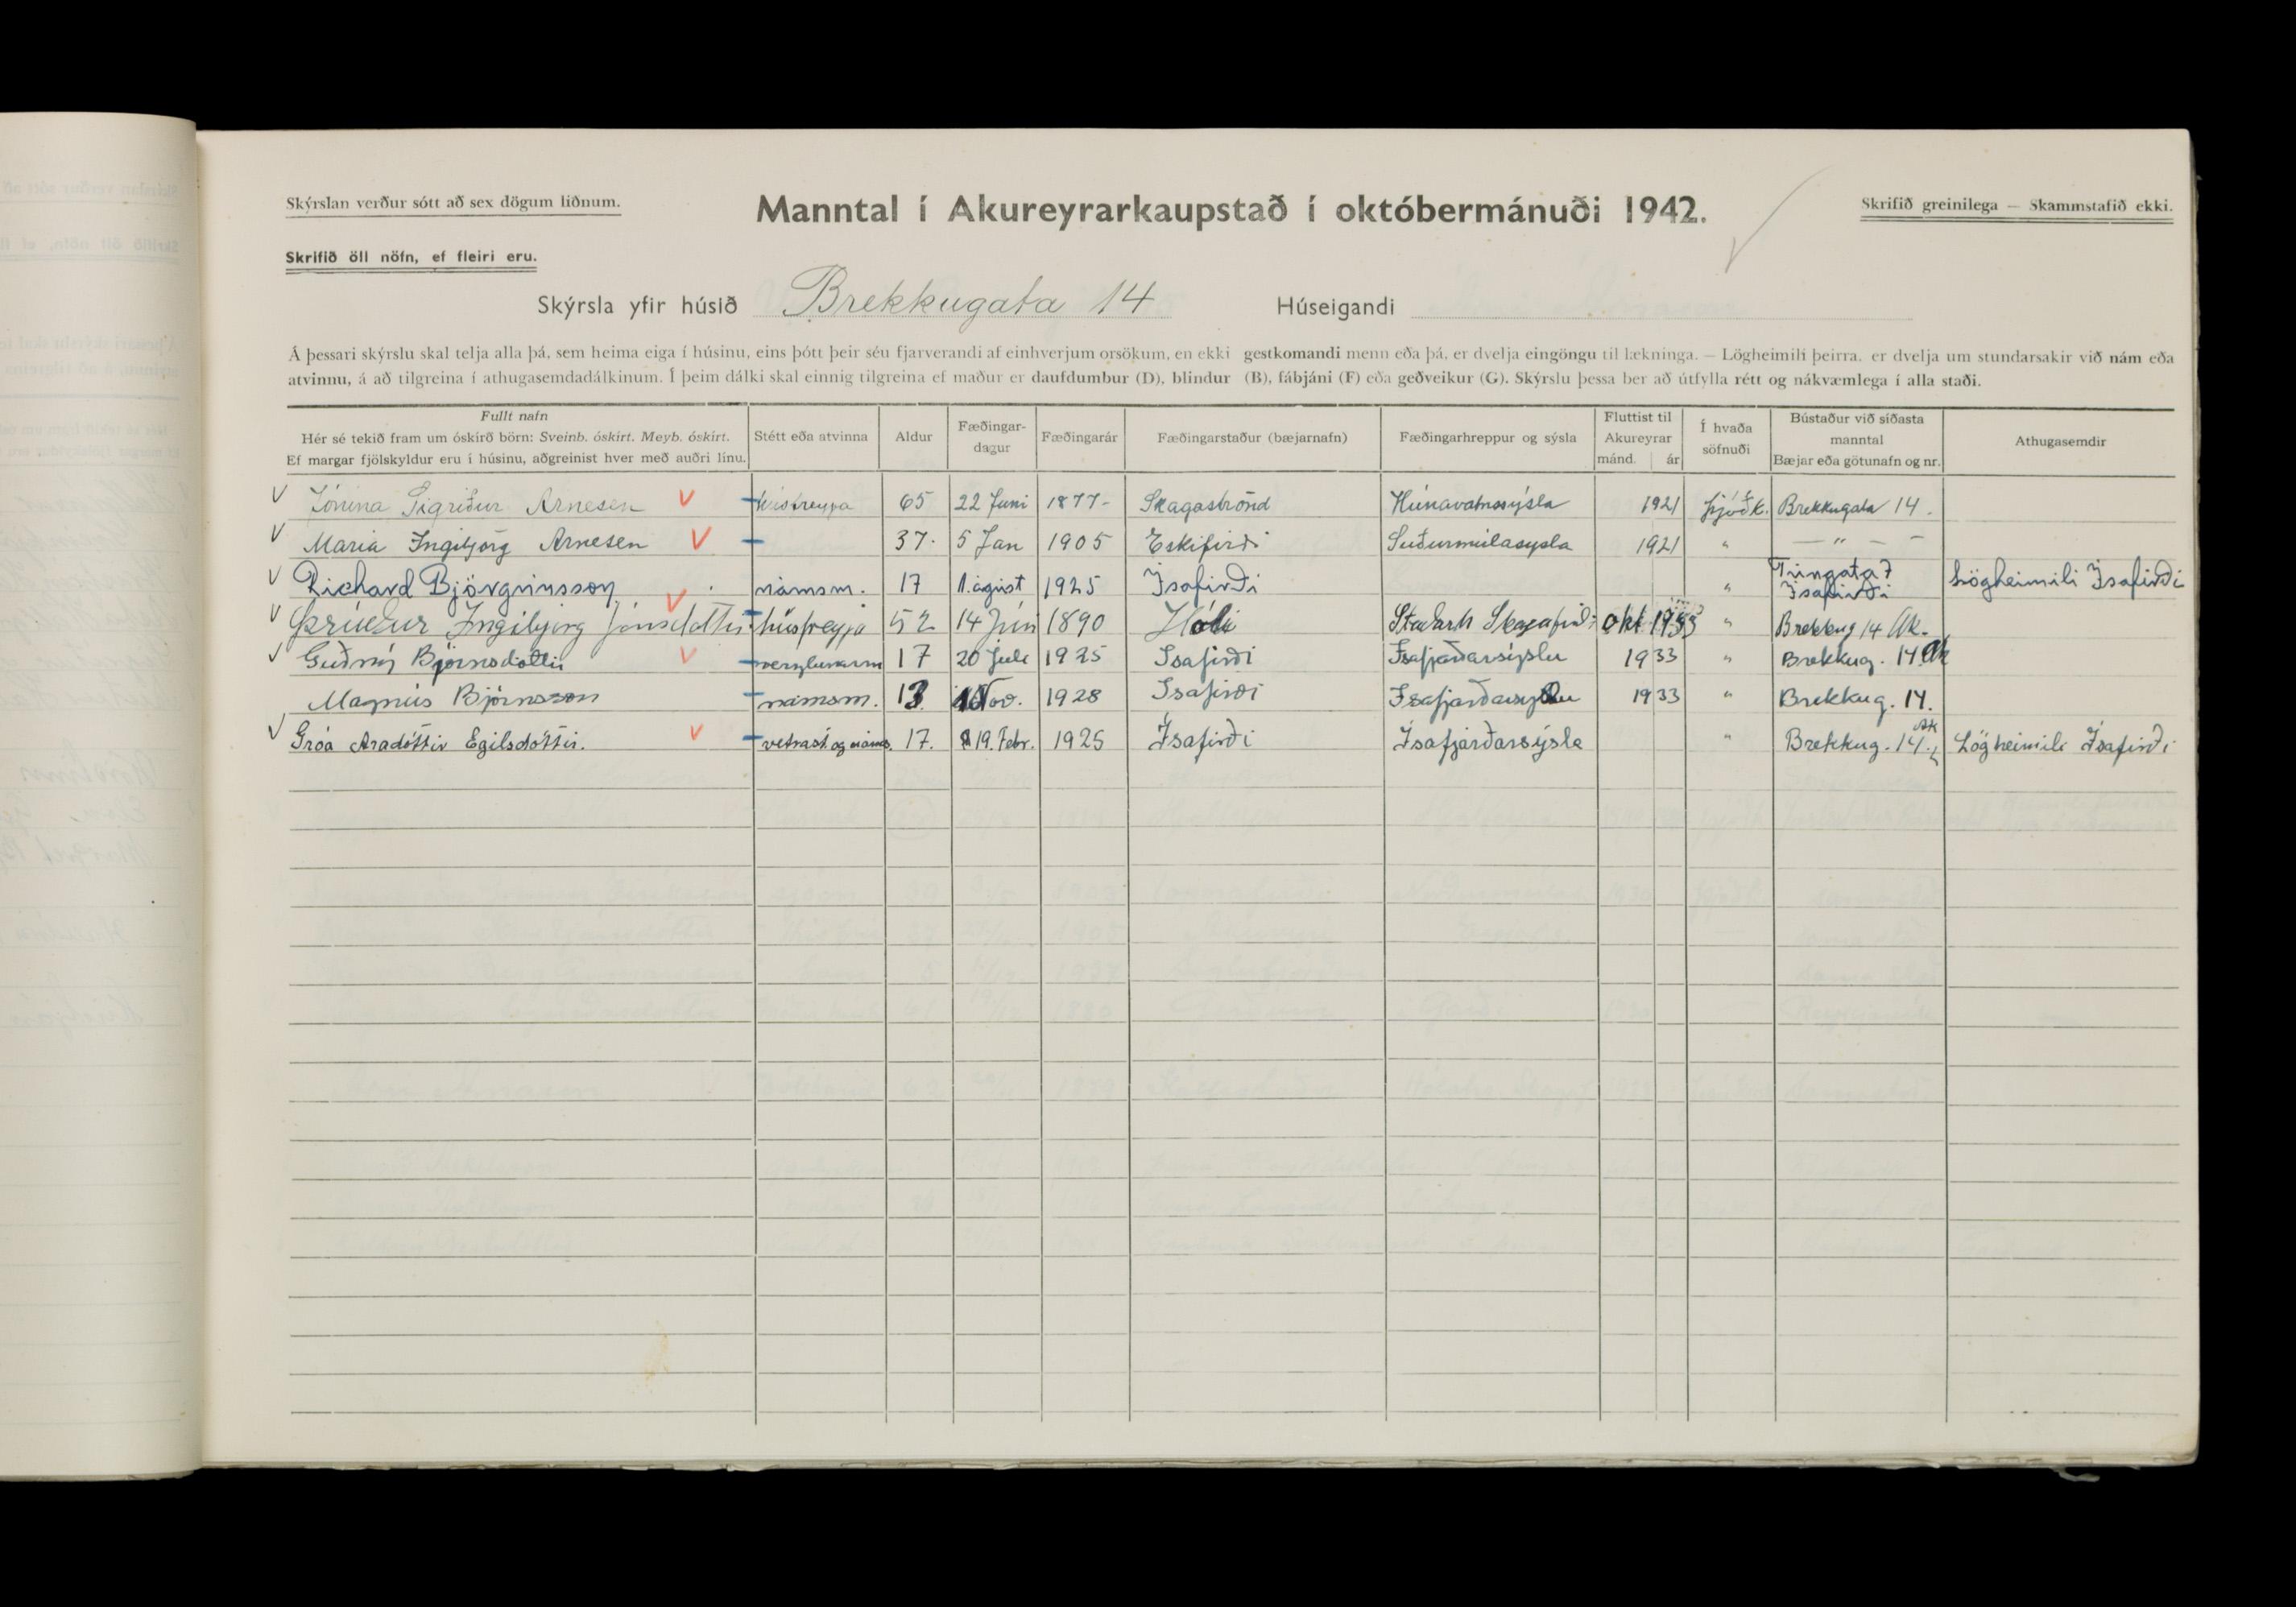 Skýrslan verður sótt að sex dögum liðnum.
Manntal í Akureyrarkaupstað í októbermánuði 1942.
Skrifið greinilega — Skammstafið ekki.
Skrifið öll nöfn, ef fleiri eru.
Skýrsla yfir húsið Brekkugata 14 Húseigandi
Á þessari skýrslu skal telja alla þá, sem heima eiga í húsinu, eins þótt þeir séu fjarverandi af einhverjum orsökum, en ekki gestkomandi menn eða þá, er dvelja eingöngu til lækninga. — Lögheimili þeirra, er dvelja um stundarsakir við nám eða
atvinnu, á að tilgreina í athugasemdadálkinum. Í þeim dálki skal einnig tilgreina ef maður er daufdumbur (D), blindur (B), fábjáni (F) eða geðveikur (G). Skýrslu þessa ber að útfylla rétt og nákvæmlega í alla staði.
Fullt nafn
Hér sé tekið fram um óskírð börn: Sveinb. óskírt. Meyb. óskírt.
Ef margar fjölskyldur eru í húsinu, aðgreinist hver með auðri línu.
Stétt eða atvinna
Aldur
Fæðingar-
dagur
Fæðingarár
Fæðingarstaður (bæjarnafn)
Fæðingarhreppur og sýsla
Fluttist til
Akureyrar
mánd. ár
Í hvaða
söfnuði
Bústaður við síðasta
manntal
Bæjar eða götunafn og nr.
Athugasemdir
V Jónína Sigríður Arnesen V húsfreyja 65 22 Juni 1877- Skagaströnd Húnavatnssýsla 1921 þjóðk. Brekkugata 14.
V Maria Ingibjörg Arnesen V 37. 5 Jan 1905 Eskifirði Suðurmúlasysla 1921 " — " — —
V Richard Björgvinsson námsm. 17 11. ágúst 1925 Ísafirði " Túngata 7 Ísafirði Lögheimili Ísafirði
V Þrúður Ingibjörg Jónsdóttir V húsfreyja 52 14 Jún 1890 Hóli Skagafirði okt 1933 " Brekkug 14 Ak.
V Guðný Björnsdóttir V 17 20 Juli 1925 Isafirði Isafjarðarsýslu 1933 " Brekkug. 14. Ak
Magnús Björnsson námsm. 13 Nov. 1928 Isafirði Isafjarðarsýslu 1933 " Brekkug. 14.
V Gróa Aradóttir Egilsdóttir. V vetrast. og náms. 17. 19. Febr. 1925 Ísafirði Ísafjarðarsýsla " Brekkug. 14. Ak Lögheimili Ísafirði